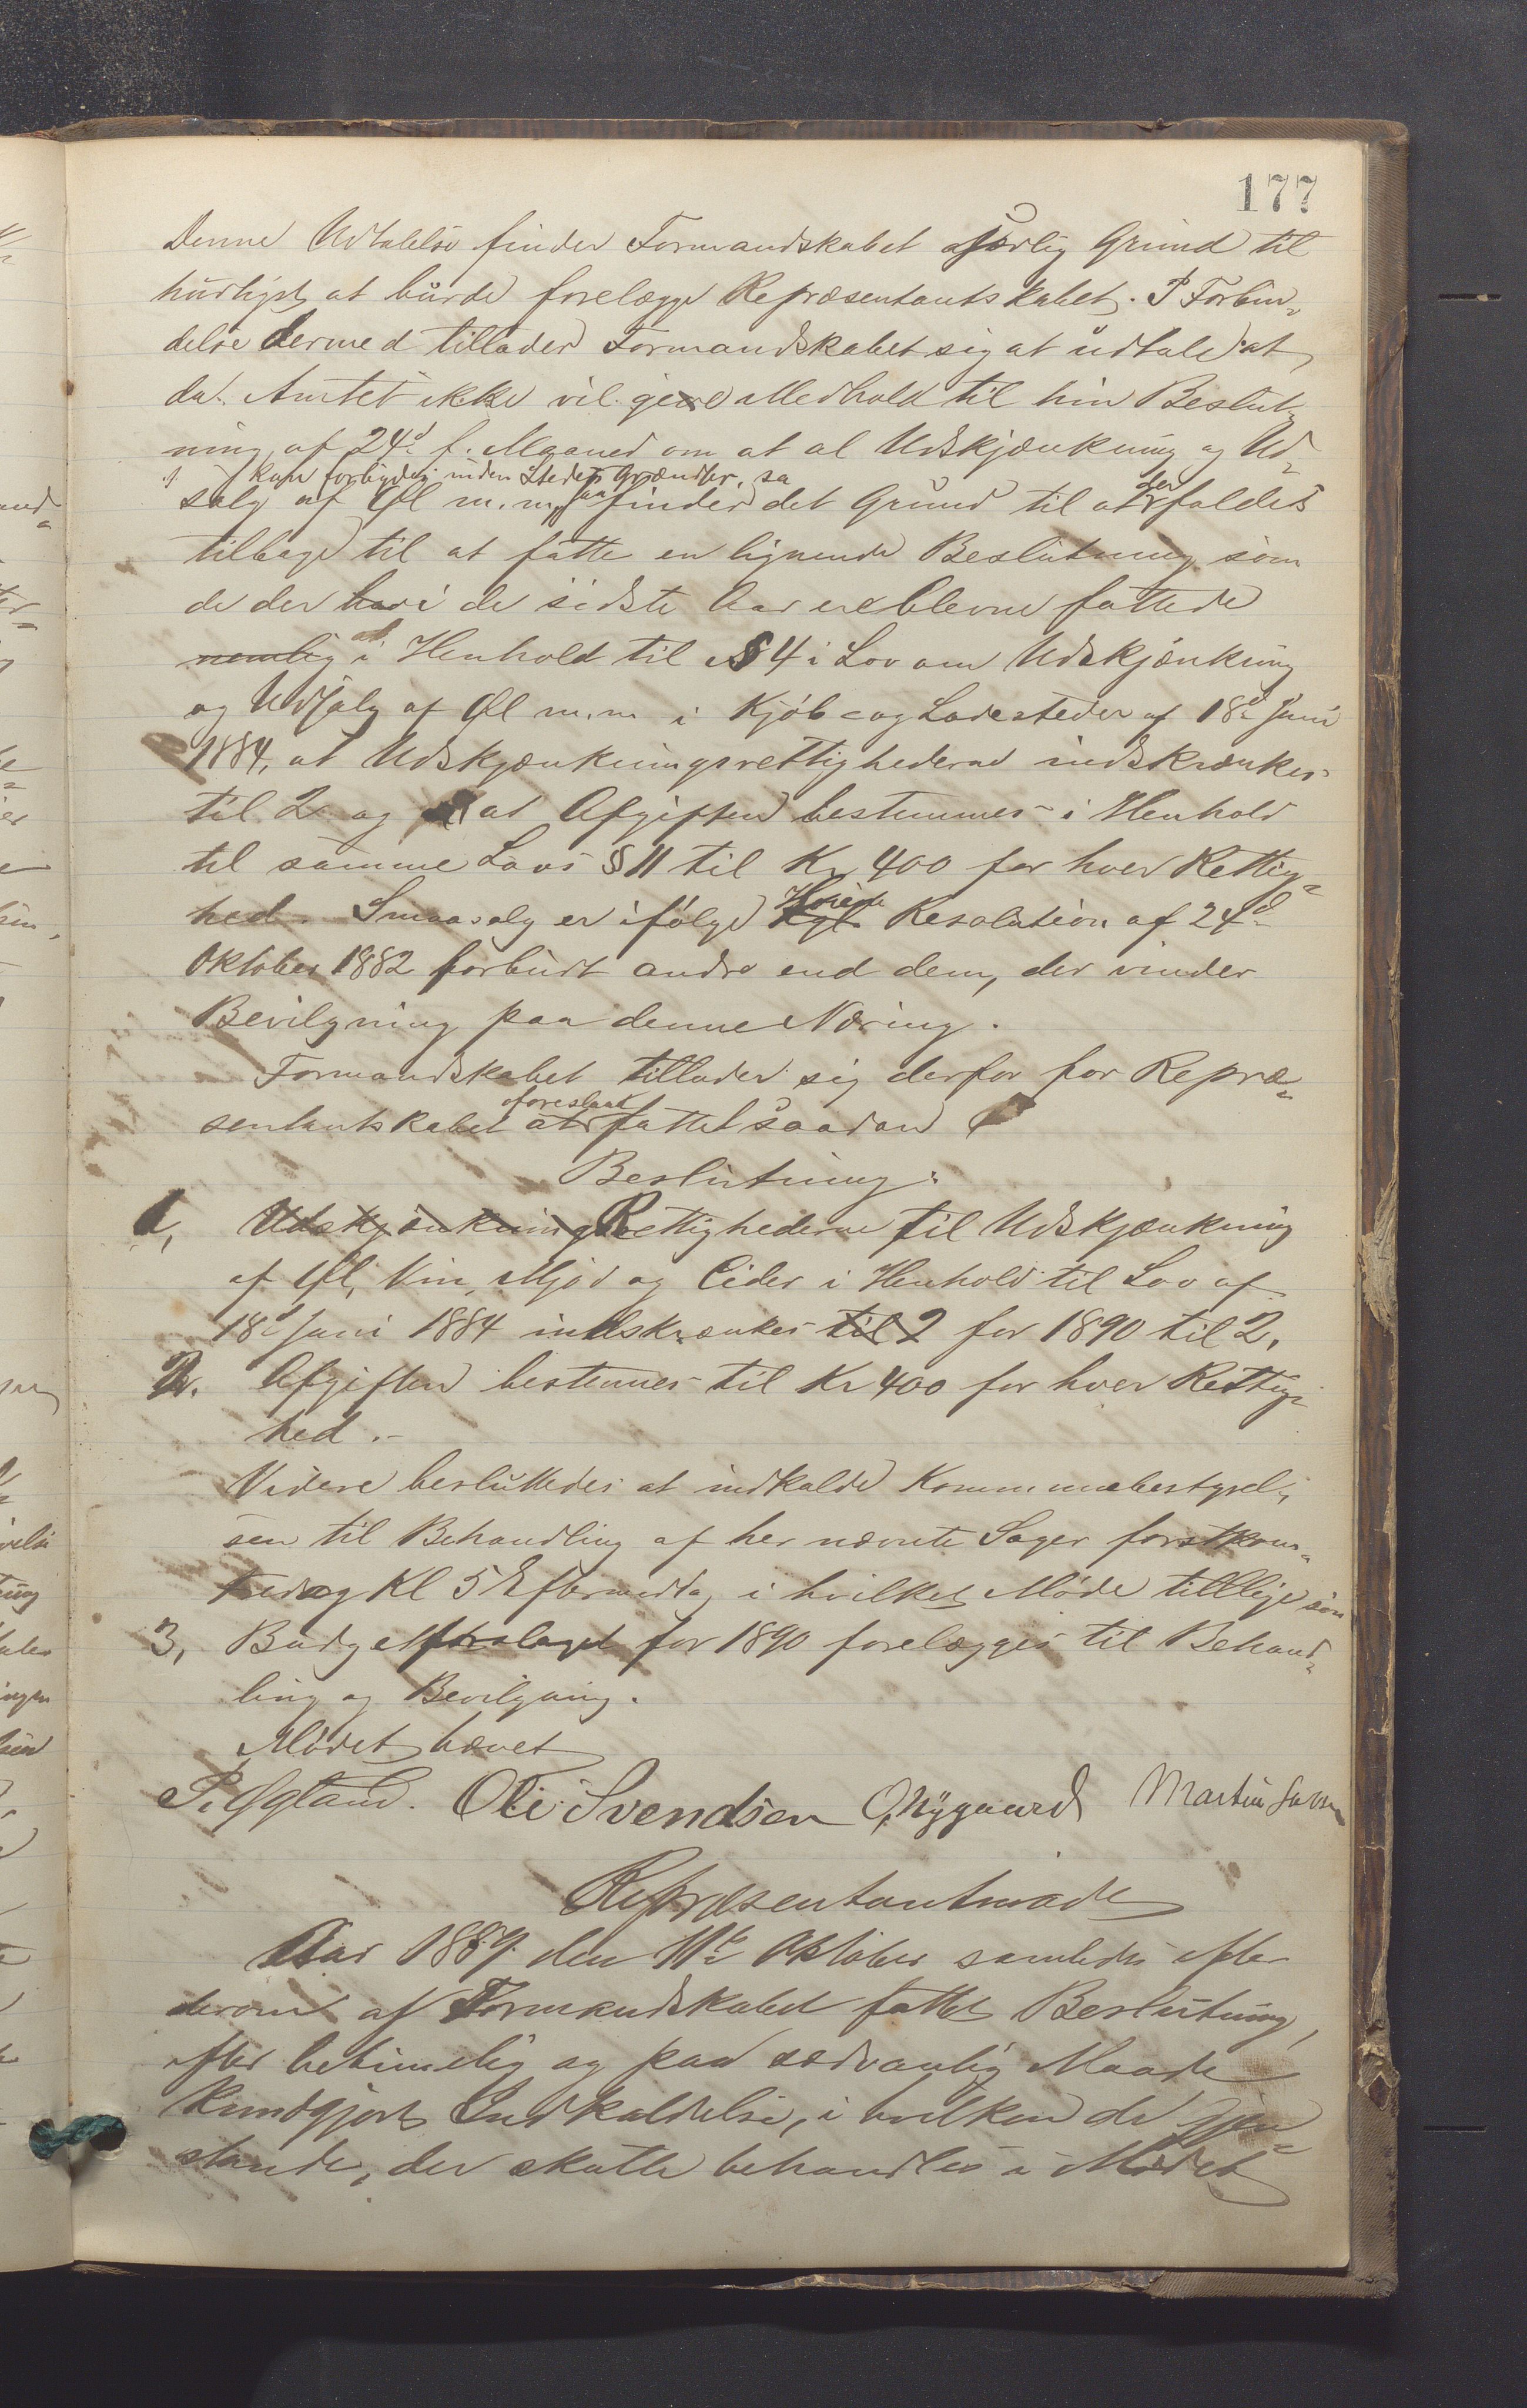 177
Denne Udtalelse finder Formandskabet særlig Grund til
hurtigst at burde forelægge Repræsentantskabet. I Forbin-
delse dermed tillader Formandskabet sig at udtale at
da Amtet ikke vil give Medhold til hin Beslut-
ning af 24d f. Maaned om at al Udskjænkning og Ud-
kun forbydes inden Stedets Grændser, saa
salg af Øl m.m. finder det Grund til at der faldes
tilbage til at fatte en lignende Beslutning som
de der har i de sidste Aar ere blevne fattede
nemlig at i Henhold til § 4 i Lov om Udskjænkning
og Udsalg af Øl m.m i Kjøb- og Ladesteder af 18de Juni
1884, at Udskjænkningsrettighederne indskrænkes
til 2 og at Afgiften bestemmes i Henhold
til samme Lovs § 11 til Kr 400 for hver Rettig-
hed. Smaasalg er ifølge Kgl. Høieste Resolution af 24d
Oktober 1882 forbudt andre end dem, der vinder
Bevilgning paa denne Næring.
Formandskabet tillader sig derfor for Repræ-
sentantskabet at foreslaa fattet saadan
Beslutning:
1, Udskjænkningsrettighederne til Udskjænkning
af Øl, Vin, Mjød og Cider i Henhold til Lov af
18d Juni 1884 indskrænkes til 2 for 1890 til 2.
2. Afgiften bestemmes til Kr 400 for hver Rettig-
hed.-
Videre besluttedes at indkalde Kommunebestyrel-
sen til Behandling af her nævnte Sager førstkom-
Fredag Kl 5 Eftermiddag, i hvilket Møde tillige som
3, Budgetforslaget for 1890 forelægges til Behand-
ling og Bevilgning.
Mødet hævet
P. Øgland. Ole Svendsen O, Nygaard Martin
Repræsentantmøde
Aar 1889 den 11te Oktober samledes efter
derom af Formandskabet fattet Beslutning,
efter betimelig og paa sædvanlig Maade
kundgjort Indkaldelse, i hvilken de Gjen-
stande, der skulle behandles i Mødet